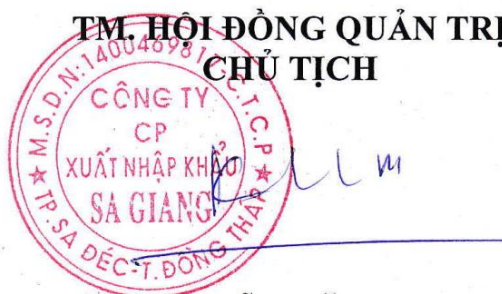 TM. HỘI ĐỒNG QUẢN TRỊ
CHỦ TỊCH
M.S.D.N:1400469817-C.T.C.P
CÔNG TY
CP
XUẤT NHẬP KHẨU
SA GIANG
TP.SA ĐÉC-T.ĐỒNG THÁP